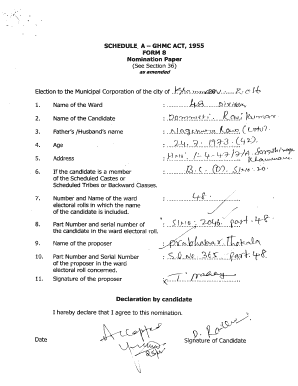 SCHEDULE A – GHMC ACT, 1955
FORM 8
Nomination Paper
(See Section 36)
as amended
Election to the Municipal Corporation of the city of Khammam - 2016
1. Name of the Ward : 48 Division
2. Name of the Candidate : Ravi Kumar
3. Father's /Husband's name : Nageswara Rao (Late).
4. Age : 24.7.1973 (42).
5. Address : H.No: 1-4-47/7/A Khammam
6. If the candidate is a member : B.C. (D). Sl.No. 20.
of the Scheduled Castes or
Scheduled Tribes or Backward Classes.
7. Number and Name of the ward : 48.
electoral rolls in which the name
of the candidate is included.
8. Part Number and serial number : Sl.No: 2046. part-48
of the candidate in the ward electoral roll.
9. Name of the proposer : Prabhakar Thokala
10. Part Number and Serial Number : S.l.No. 365 part-48
of the proposer in the ward
electoral roll concerned.
11. Signature of the proposer :
Declaration by candidate
I hereby declare that I agree to this nomination.
Accepted
Date Signature of Candidate